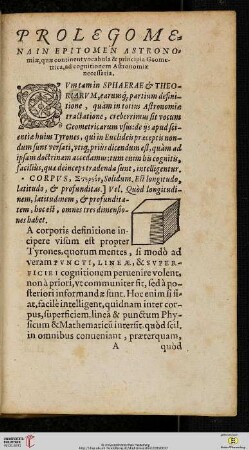 PROLEGOME-
NA IN EPITOMEN ASTRONO-
miæ, quæ continent vocabula & principia Geome-
trica, ad cognitionem Astronomiæ
necessaria.
CVm tam in SPHAERAE & THEO-
RIARVM, earumq́; partium definitio-
ne, quàm in totius Astronomiæ
tractatione, creberrimus sit vocum
Geometricarum vsus: & ijs apud sci-
entiæ huius Tyrones, qui in Euclideis præceptis non-
dum sunt versati, vtiq; priùs dicendum est, quàm ad
ipsam doctrinam accedamus: tum enim his cognitis,
faciliùs, quæ deinceps tradenda sunt, intelligentur.
CORPUS, Solidum, Est longitudo,
latitudo, & profunditas.] Vel, Quòd longitudi-
nem, latitudinem, & profundita-
tem, hoc est, omnes tres dimensio-
nes habet.
A corporis definitione in-
cipere visum est propter
Tyrones, quorum mentes, si modò ad
veram PVNCTI, LINEÆ, & SVPER-
FICIEI cognitionem peruenire volent,
non à priori, vt communiter fit, sed à po-
steriori informandæ sunt. Hoc enim si fi-
at, facilè intelligent, quidnam inter cor-
pus, superficiem, linea & punctum Phy-
sicum & Mathematicũ intersit. quòd scil.
in omnibus conueniant, præterquam,
A quòd